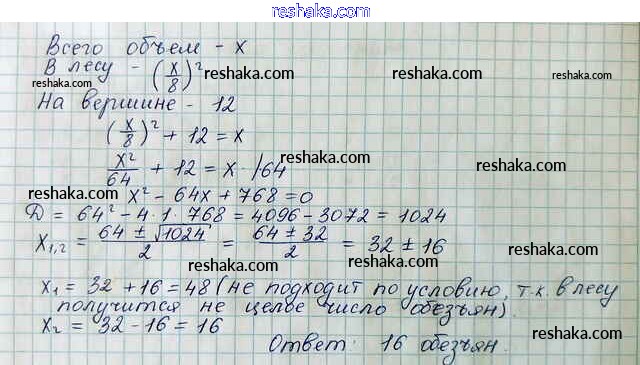 reshaka.com
Всего объем - x
В лесу - (x/8)² reshaka.com reshaka.com
reshaka.com
На вершине - 12
(x/8)² + 12 = x
x²/64 + 12 = x · /64 reshaka.com reshaka.com
reshaka.com x² - 64x + 768 = 0
Д = 64² - 4·1·768 = 4096 - 3072 = 1024
x₁,₂ = (64 ± √1024)/2 = (64 ± 32)/2 = 32 ± 16
reshaka.com reshaka.com
reshaka.com
x₁ = 32 + 16 = 48 (не подходит по условию, т.к. в лесу
получится не целое число обезьян).
x₂ = 32 - 16 = 16
reshaka.com
Ответ: 16 обезьян.
reshaka.com